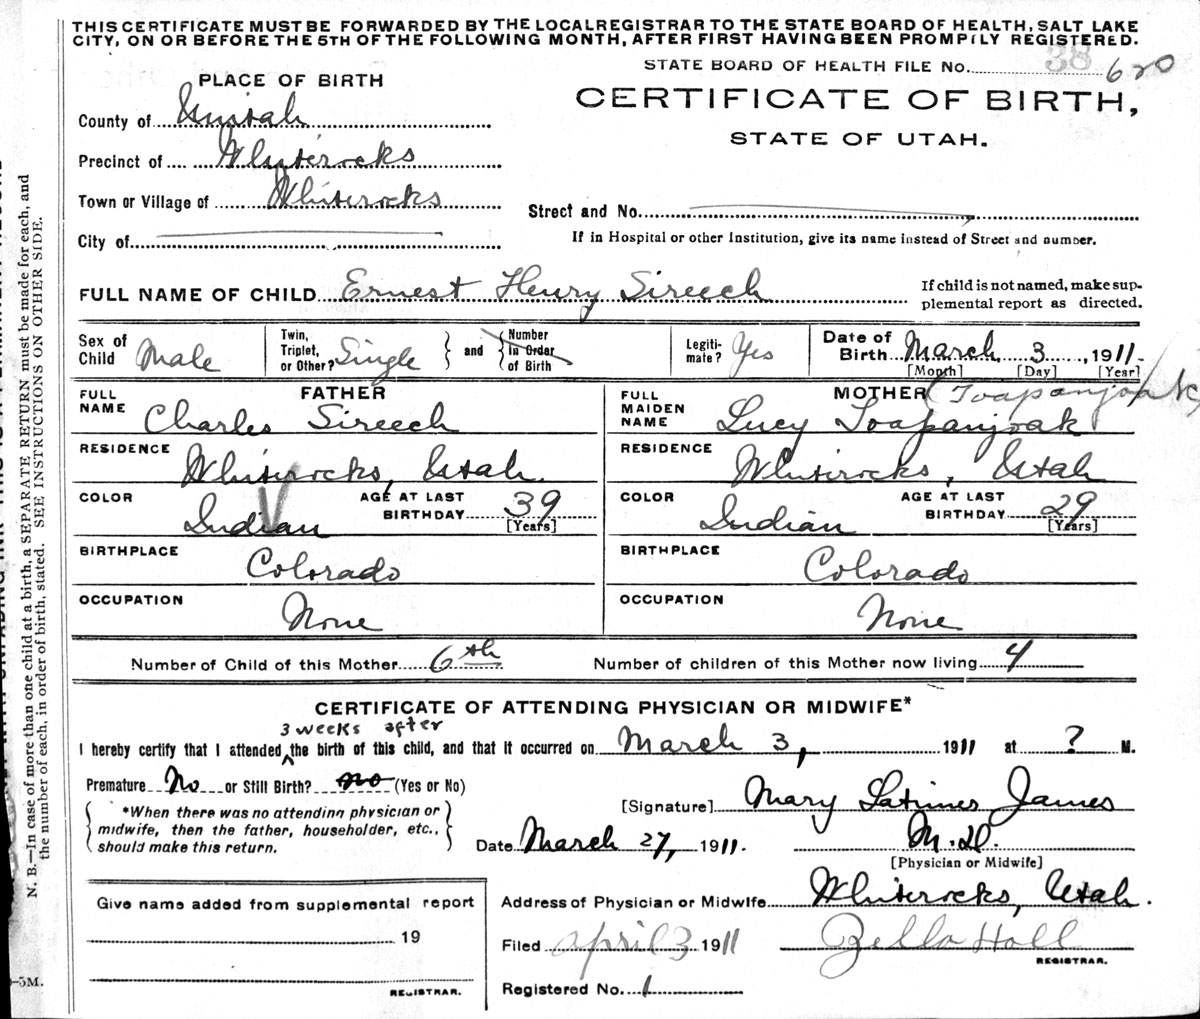 THIS CERTIFICATE MUST BE FORWARDED BY THE LOCAL REGISTRAR TO THE STATE BOARD OF HEALTH, SALT LAKE
CITY, ON OR BEFORE THE 5TH OF THE FOLLOWING MONTH, AFTER FIRST HAVING BEEN PROMPTLY REGISTERED.
STATE BOARD OF HEALTH FILE NO. 38 620
PLACE OF BIRTH
CERTIFICATE OF BIRTH,
STATE OF UTAH.
County of Uintah
Precinct of Whiterocks
Town or Village of Whiterocks
Street and No.
City of
If in Hospital or other Institution, give its name instead of Street and number.
FULL NAME OF CHILD Ernest Henry Sireech
If child is not named, make sup-
plemental report as directed.
Sex of Child Male
Twin, Triplet, or Other? Single
and Number in Order of Birth
Legiti-mate? Yes
Date of Birth March 3, 1911.
[Month] [Day] [Year]
FATHER
MOTHER (Toapanjoak)
FULL NAME Charles Sireech
FULL MAIDEN NAME Lucy Toapanjoak
RESIDENCE Whiterocks, Utah.
RESIDENCE Whiterocks, Utah
COLOR Indian
AGE AT LAST BIRTHDAY 39 [Years]
COLOR Indian
AGE AT LAST BIRTHDAY 29 [Years]
BIRTHPLACE Colorado
BIRTHPLACE Colorado
OCCUPATION None
OCCUPATION None
Number of Child of this Mother 6th
Number of children of this Mother now living 4
CERTIFICATE OF ATTENDING PHYSICIAN OR MIDWIFE*
3 weeks after
I hereby certify that I attended ^ the birth of this child, and that it occurred on March 3, 1911 at ? M.
Premature No or Still Birth? no (Yes or No)
*When there was no attending physician or
midwife, then the father, householder, etc.,
should make this return.
[Signature] Mary Latimer James
Date March 27, 1911. M.D.
[Physician or Midwife]
Give name added from supplemental report
19
REGISTRAR.
Address of Physician or Midwife Whiterocks, Utah.
Filed April 3 1911 Zella Hall
REGISTRAR.
Registered No. 1
N. B.—In case of more than one child at a birth, a SEPARATE RETURN must be made for each, and
the number of each, in order of birth, stated. SEE INSTRUCTIONS ON OTHER SIDE.
-5M.